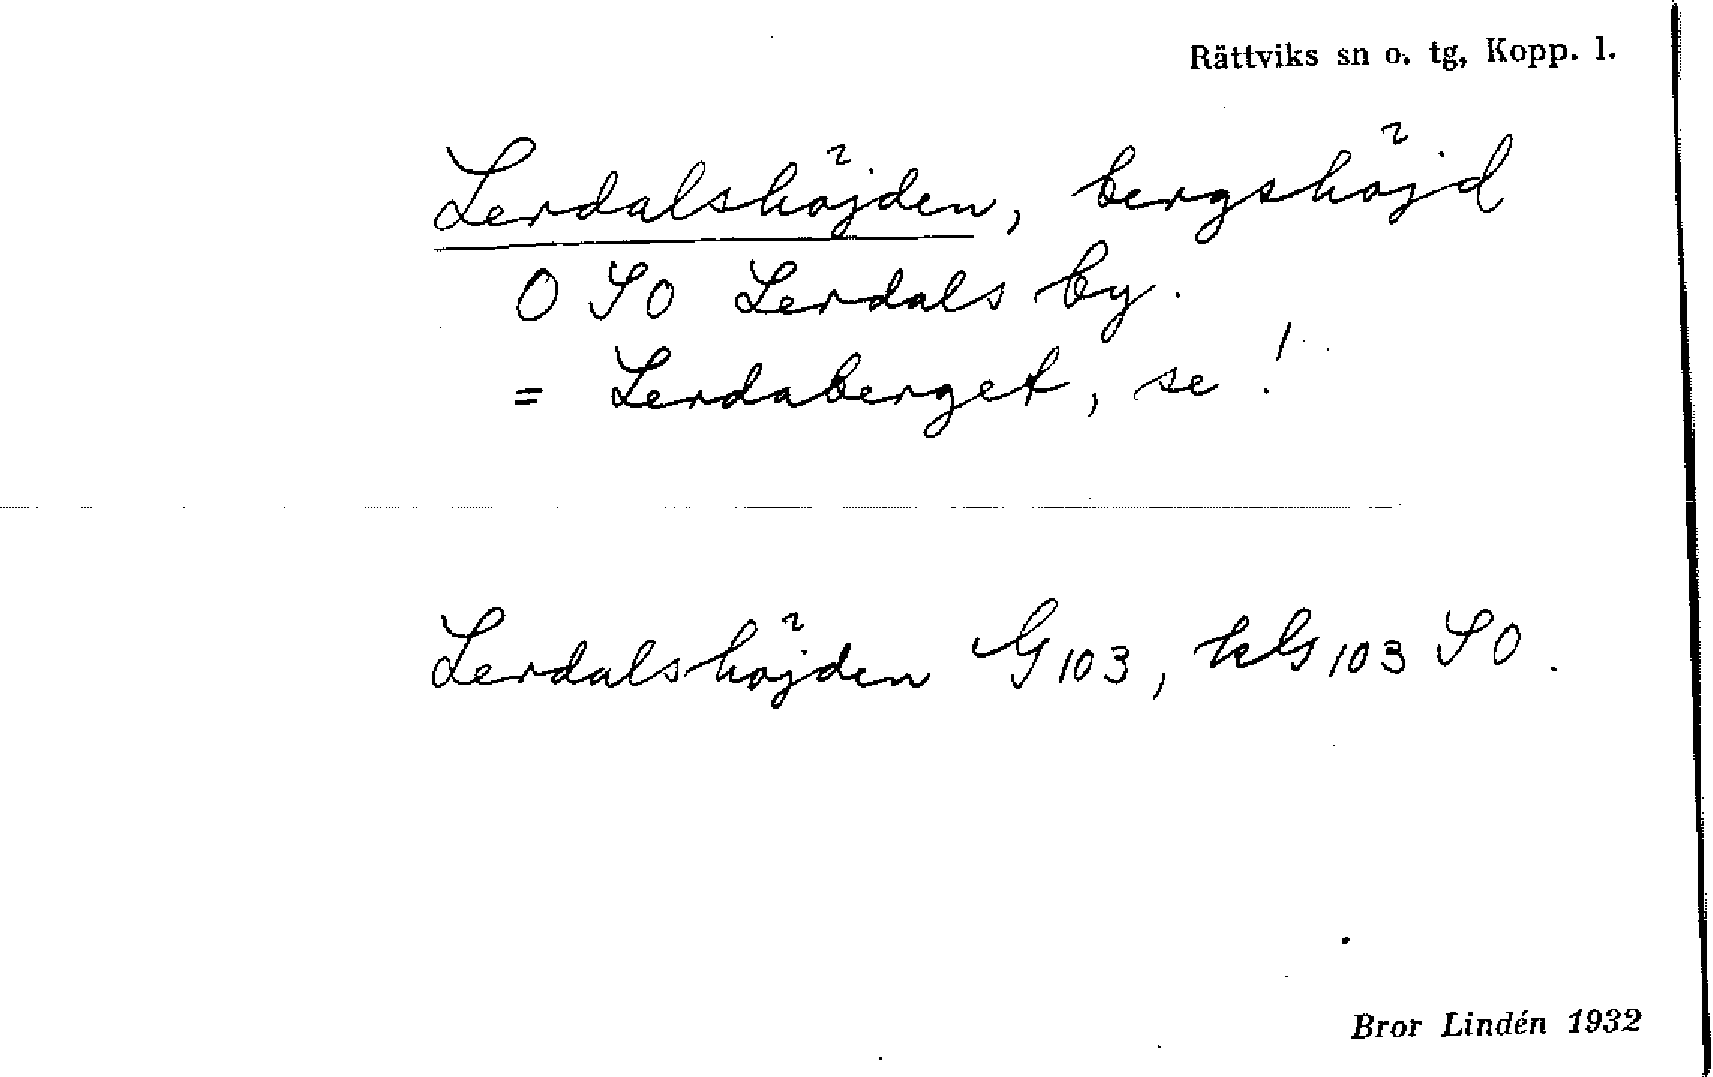 Rättviks sn o. tg, Kopp. l.
Lerdalshöjden, bergshöjd
O SO Lerdals by.
= Lerdaberget, se !
Lerdalshöjden G103, kG103 SO.
Bror Lindén 1932